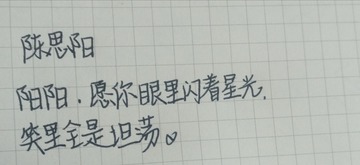 陈思阳
阳阳，愿你眼里闪着星光，
笑里全是坦荡。